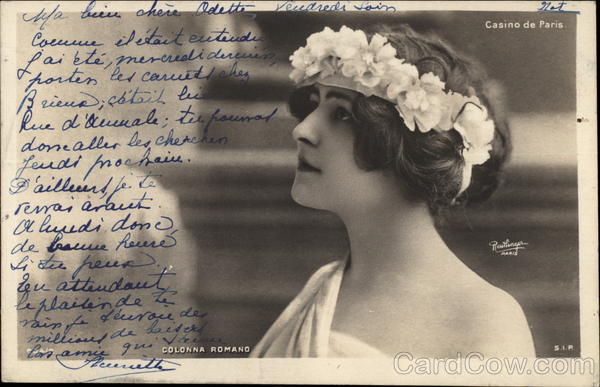 Ma bien chère Odette Vendredi Soir
Casino de Paris.
Comme il était entendu
J'ai été, mercredi dernier,
porter les carnets chez
c'était
Rue d'Aumale; tu pourras
donc aller les chercher
Jeudi prochain.
D'ailleurs, je te
verrai avant.
A lundi donc
de bonne heure
Si tu peux.
En attendant
le plaisir de te
voir je t'envoie des
millions de baisers
ton amie qui t'aime
Henriette
Reutlinger
PARIS
COLONNA ROMANO
S.I.P.
CardCow.com